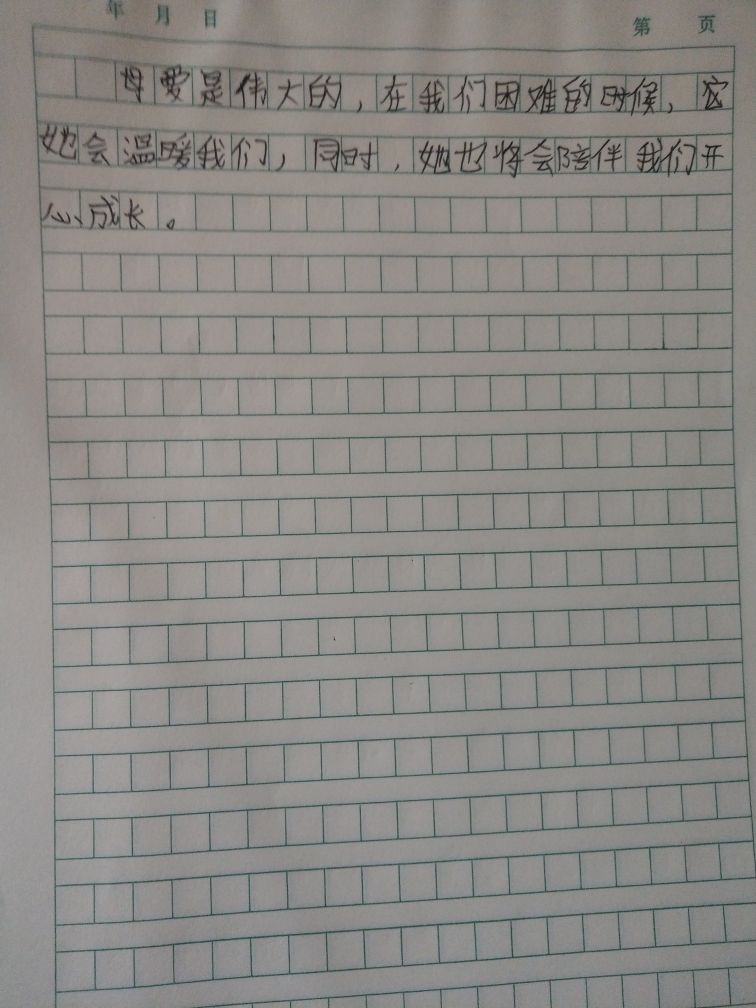 年 月 日
第 页
母爱是伟大的，在我们困难的时候，它
她会温暖我们，同时，她也将会陪伴我们开
心成长。